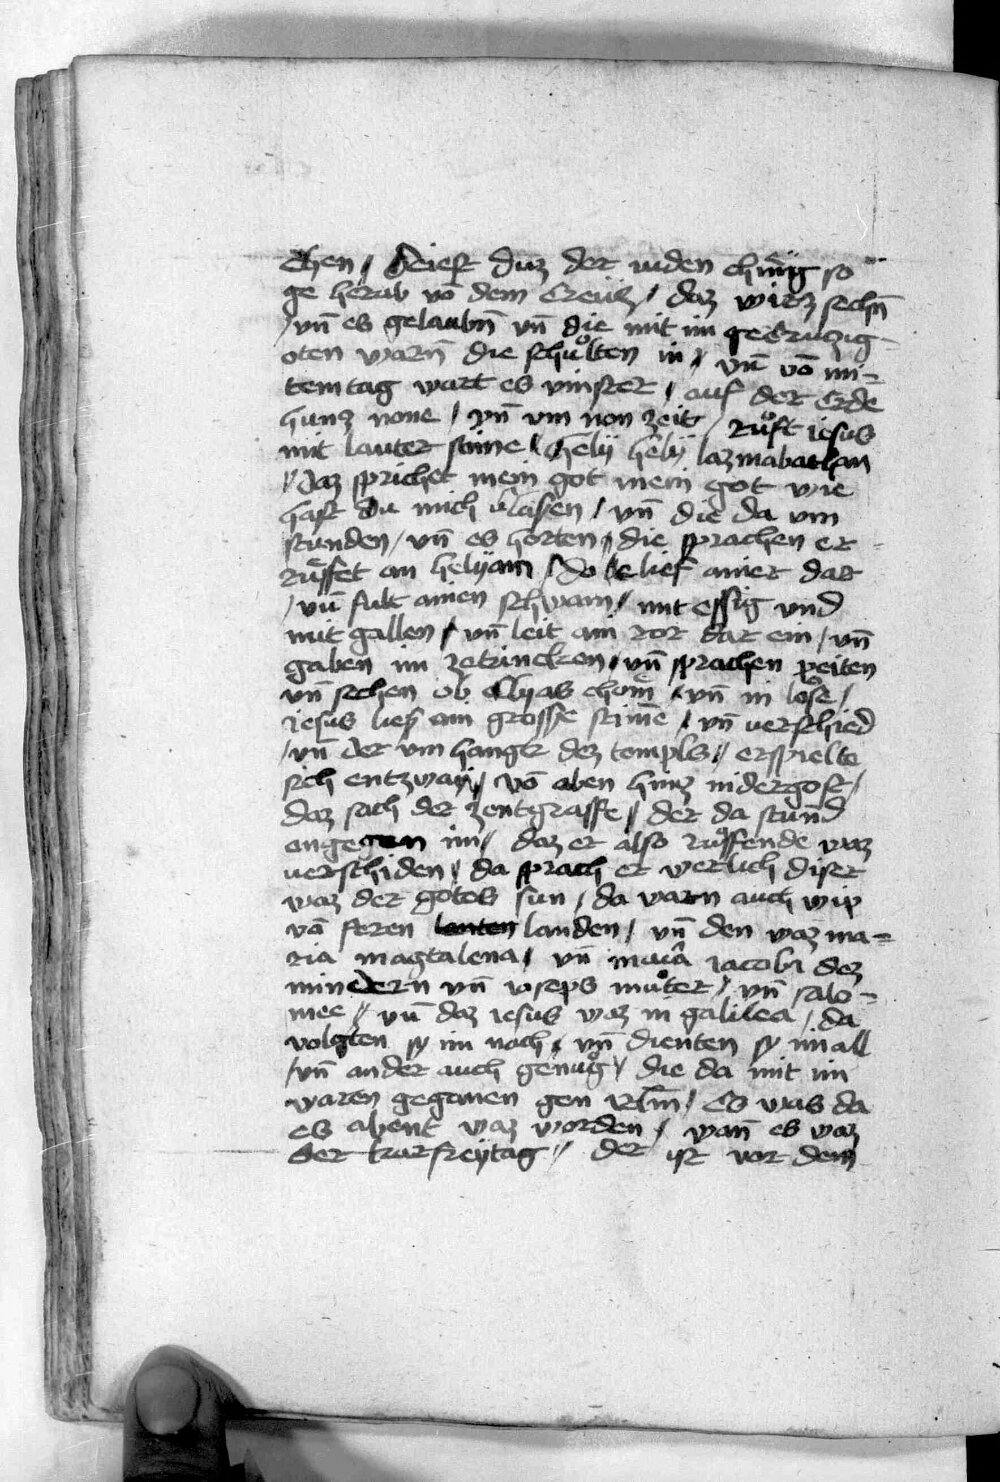 chen / Seiest duz der iuden chnig so
ge herab vō dem Creücz / daz wirz sechn̄
/ vn̄ es gelaubn̄ vn̄ die mit im gecruczig-
oten warn̄ die schůlten in / vn̄ vō mi-
temtag wart es vinster / auf der Erde
huncz none / vn̄ vm non zeit / růft iesus
mit lauter stime / hely hely lazmabathan
/ daz sprichet mein got mein got wie
hast du mich v̓lasen / vn̄ die da vm
stunden / vn̄ es horten / die sprachen er
růffet an helyam / do lief ainer dar
/ vn̄ fult ainen schwam / mit essig vnd
mit gallen / vn̄ leit ain ror dar ein / vn̄
gaben im zetrincken / vn̄ sprachen peiten
vn̄ sechen ob elyas chom̄ / vn̄ in lose /
iesus liess ain grosse stim̄e / vn̄ verschied
/ vn̄ der vmhangk dez templs / erspielte
sich entzway / vō oben hincz nidergost /
daz sach der zentgraffe / der da stund
engegen im / daz er also růffende waz
verschiden / da sprach er werlich diser
waz der gotes sun / da warn auch wip
vō feren landen / vn̄ den waz ma-
ria magtalena / vn̄ maria iacobi dez
mindern vn̄ ioseps můter / vn̄ salo-
mee / vn̄ daz iesus waz in galilea / da
volgten sy im nach / vn̄ dienten sy im all
/ vn̄ ander auch genůg / die da mit im
waren gegangen gen irlm̄ / Es was da
es abent waz worden / wan̄ es waz
der karfreytag / der ist vor dem